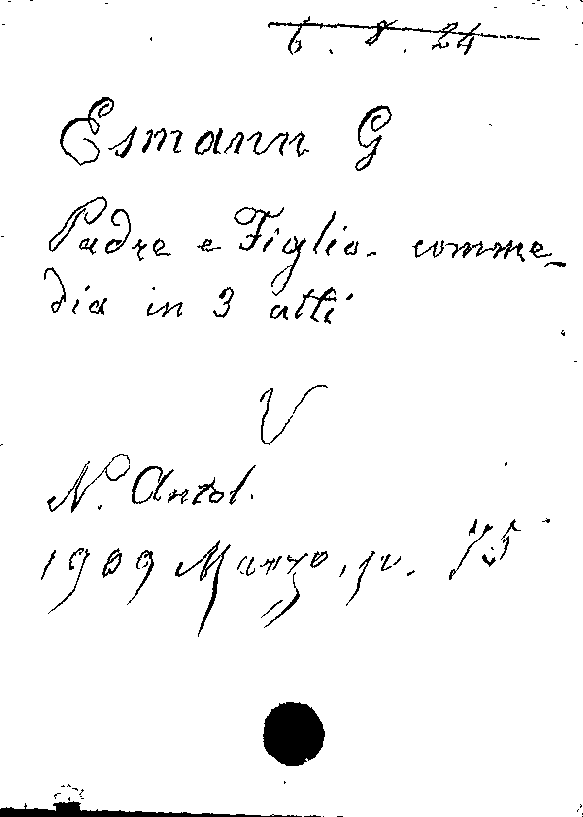 6. 8. 24
Esmann G
Padre e Figlio. comme-
dia in 3 atti
V
N. Antol.
1909 Marzo, p. 75